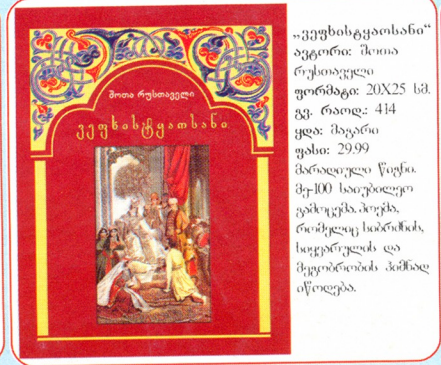 შოთა რუსთაველი
ვეფხისტყაოსანი
„ვეფხისტყაოსანი“
ავტორი: შოთა
რუსთაველი
ფორმატი: 20X25 სმ.
გვ. რაოდ.: 414
ყდა: მაგარი
ფასი: 29.99
მარადიული წიგნი.
მე-100 საიუბილეო
გამოცემა. პოემა,
რომელიც სიბრძნის,
სიყვარულის და
მეგობრობის ჰიმნად
იწოდება.